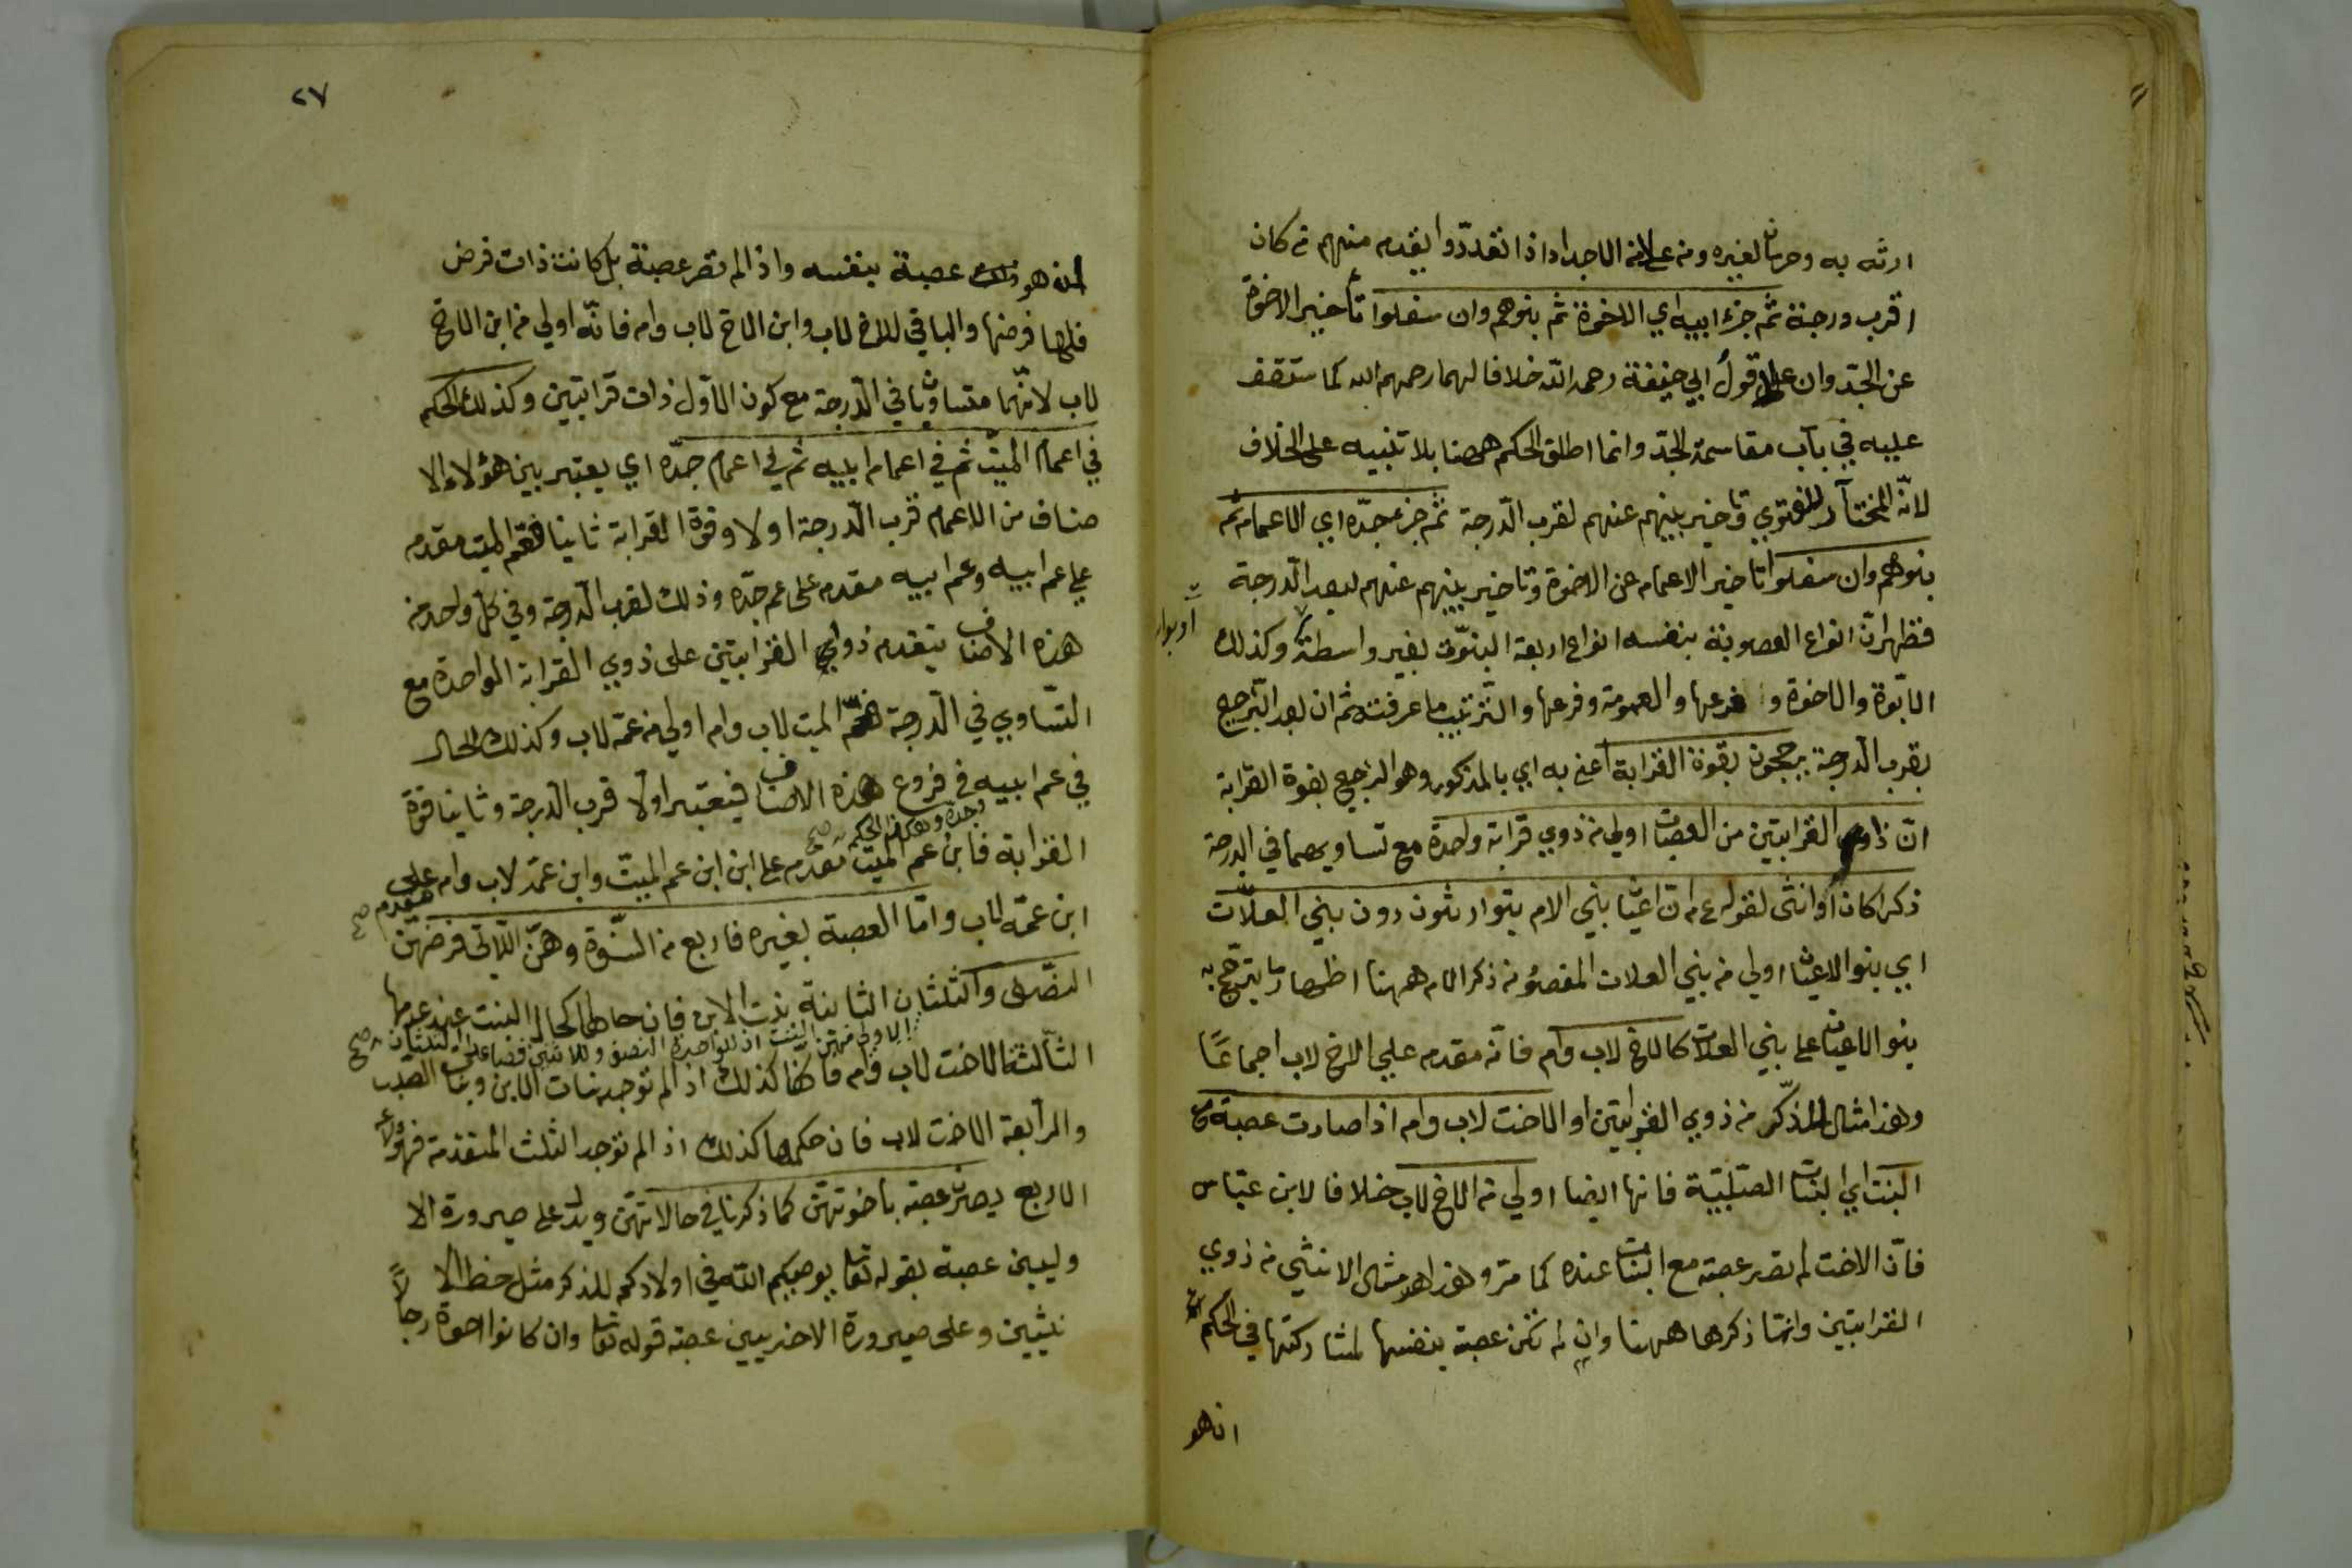 ارثه به وحرمان لغيره ومن علا من الاجداد اذا تعدّدوا يقدم منهم من كان
اقرب درجة ثم جزء ابيه اي الاخوة ثم بنوهم وان سفلوا تأخير الاخوة
عن الجدّ وان علا قول ابي حنيفة رحمه الله خلافا لهما رحمهم الله كما ستقف
عليه في باب مقاسمة الجدّ وانما اطلق الحكم ههنا بلا تنبيه على الخلاف
لانّه المختار للفتوي وتأخير بنيهم عنهم لقرب الدّرجة ثم جزء جدّه اي الاعمام ثم
بنوهم وان سفلوا تاخير الاعمام عن الاخوة وتاخير بنيهم عنهم لبعد الدّرجة
فظهر انّ انواع العصوبة بنفسه انواع اربعة البنوّة بغير واسطة وكذلك
الابّوة والاخوة وفرعها والعمومة وفرعها والتّرتيب ما عرفت ثم ان بعد التّرجيح
بقرب الدّرجة يرجحون بقوة القرابة اعني به اي بالمذكور وهو الترجيح بقوة القرابة
انّ ذا القرابتين من العصبات اولي من ذوي قرابة واحدة مع تساويهما في الدرجة
ذكرا كان أو انثى لقوله عم ان اعيا بني الام يتوارثون دون بني العلّات
اي بنوا الاعيا اولي من بني العلات المقصو من ذكر الام ههنا اظهار ما يترجّح به
بنو الاعيان على بني العلات كالاخ لاب وام فانّه مقدم علي الاخ لاب اجماعًا
وهذا مثال المذكّر من ذوي القرابتين او الاخت لاب وام اذا صارت عصبة مع
البنت اي البنات الصّلبيّة فانها ايضا اولي من الاخ لاب خلافا لابن عبّاس
فانّ الاخت لم تصر عصبة مع البنات عنده كما مرّ وهذا هو مثال الانثي من ذوي
القرابتين وانّما ذكرها ههنا وان لم تكن عصبة بنفسها لمشاركتها في الحكم
ان هو
٢٧
لمن هو عصبة بنفسه واذا لم تصر عصبة بل كانت ذات فرض
فلها فرضها والباقي للاخ لاب وابن الاخ لاب وام فانّه اولي من ابن الاخ
لاب لانّهما متساويا في الدّرجة مع كون الاوّل ذات قرابتين وكذلك الحكم
في اعمام الميّت ثم في اعمام ابيه ثم في اعمام جدّه اي يعتبر بين هؤلاء الا
صناف من الاعمام قرب الدّرجة اولا وقوة القرابة ثانيا فعم الميت مقدم
علي عم ابيه وعم ابيه مقدم على عم جدّه وذلك لقرب الدّرجة وفي كلّ واحد من
هذه الاصناف يتقدم ذوي القرابتين على ذوي القرابة الواحدة مع
التّساوي في الدّرجة فعمّ الميت لاب وام اولي من عمّه لاب وكذلك الحال
في عم ابيه وجده وهكذا الحكم صح في فروع هذه الاصناف فيعتبر اولًا قرب الدّرجة وثانيا قوة
القرابة فابن عم الميّت مقدم على ابن ابن عم الميّت وابن عمّه لاب وام مقدم صح على
ابن عمّه لاب وامّا العصبة بغيره فاربع من النّسوة وهنّ اللّاتى فرضهنّ
النصّف والثلثان الثانية بنت الابن فان حالها كحال البنت عند عدمها
الاولى منهنّ البنت اذ للواحدة النصف وللاثنين فصاعدا الثلثان صح
الثّالثة الاخت لاب وام فانها كذلك اذا لم توجد بنات الابن وبنات الصلب
والرّابعة الاخت لاب فان حكمها كذلك اذا لم توجد الثلث المتقدّمة فهؤلاء
الاربع يصرن عصبة باخوتهنّ كما ذكرنا في حالاتهنّ ويدل على صيرورة الا
وليين عصبة بقوله تعا يوصيكم الله في اولادكم للذكر مثل حظ الا
نثيين وعلى صيرورة الاخريين عصبة قوله تعا وان كانوا اخوة رجالًا